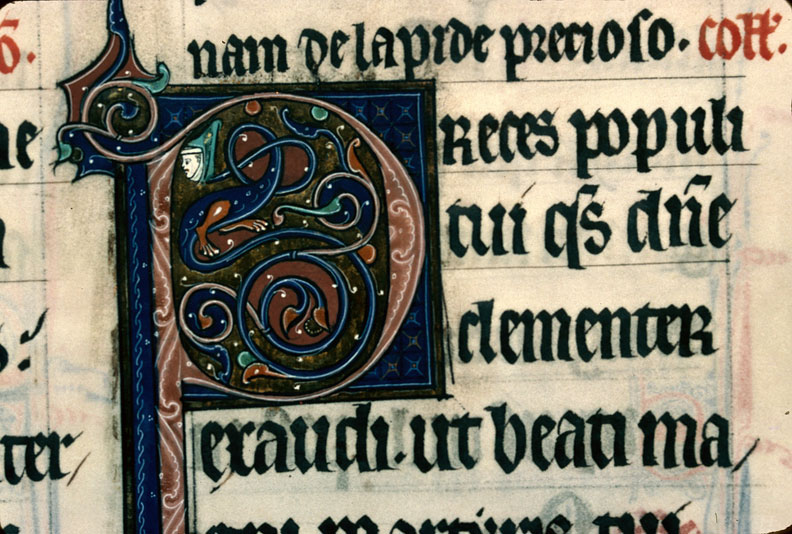 nam de lapide precioso. coll'.
PReces populi
tui qs dn̄e
clementer
exaudi. ut beati ma
gni martiris tui
ae
ter